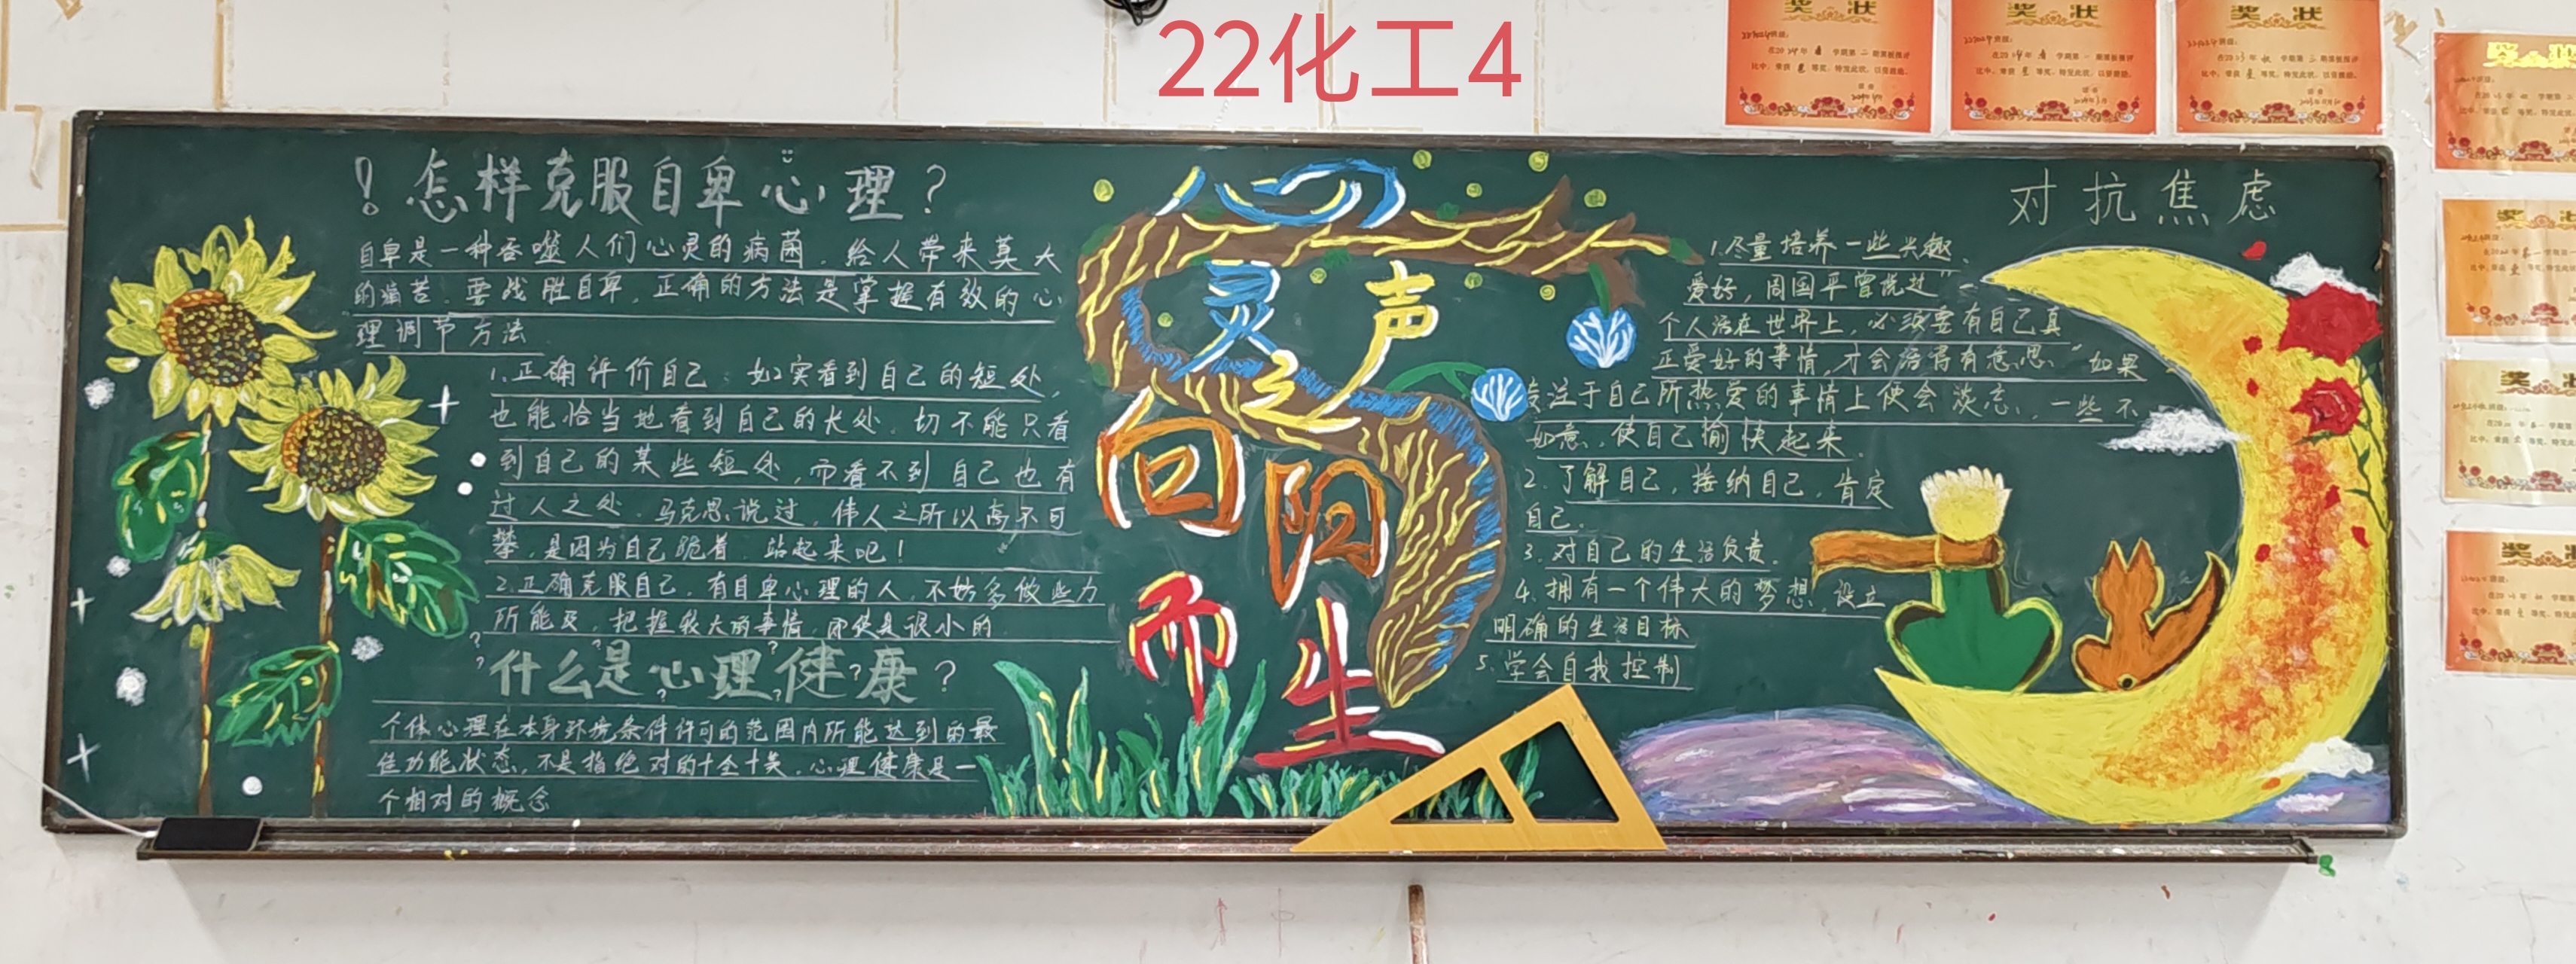 22化工4
奖状
奖状
奖状
！怎样克服自卑心理？
自卑是一种吞噬人们心灵的病菌．给人带来莫大
的痛苦．要战胜自卑．正确的方法是掌握有效的心
理调节方法
1.正确评价自己．如实看到自己的短处，
也能恰当地看到自己的长处．切不能只看
到自己的某些短处，而看不到自己也有
过人之处．马克思说过，伟人之所以高不可
攀，是因为自己跪着．站起来吧！
2.正确克服自己，有自卑心理的人，不妨多做些力
所能及，把握较大的事情，即使是很小的．
什么是心理健康？
个体心理在本身环境条件许可的范围内所能达到的最
佳功能状态，不是指绝对的十全十美．心理健康是一
个相对的概念
心灵之声
向阳而生
对抗焦虑
1.尽量培养一些兴趣、
爱好，周国平曾说过“一
个人活在世界上，必须要有自己真
正爱好的事情，才会活得有意思”如果
专注于自己所热爱的事情上便会淡忘，一些不
如意，使自己愉快起来．
2.了解自己，接纳自己，肯定
自己．
3.对自己的生活负责．
4.拥有一个伟大的梦想，设立
明确的生活目标
5.学会自我控制